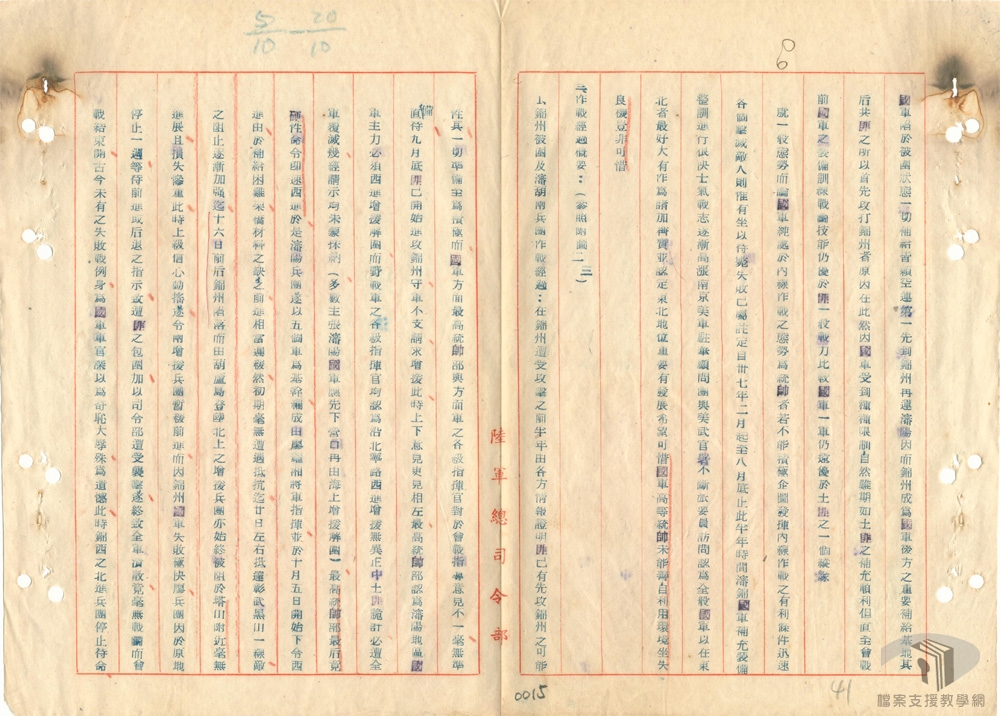 國軍陷於被圍狀態一切補給皆賴空運第一先到錦州再運瀋陽因而錦州成為國軍後方之重要補給基地其
后共匪之所以首先攻打錦州者原因在此然因國軍受到種種限制自然難期如土匪之補充順利但直至會戰
前國軍之裝備訓練戰鬪技能仍優於匪一般戰力比較國軍一軍仍遠優於土匪之一個縱隊
就一般態勢而論國軍雖處於內線作戰之態勢為統帥者若不能積極企圖發揮內線作戰之有利條件迅速
各個擊滅敵人則惟有坐以待斃失敗已屬註定自卅七年二月起至八月底止此半年時間瀋錦國軍補充裝備
整訓進行很快士氣戰志逐漸高漲南京美軍駐華顧問團與美武官署不斷派要員訪問認為全般國軍以在東
北者最好大有作為諸加稱贊並認定東北地位重要有發展希望可惜國軍高等統帥未能善自利用環境坐失
良機豈非可惜
六作戰經過概要：（參照附圖二三）
1.錦州被圍及瀋胡兩兵團作戰經過：在錦州遭受攻擊之前半年由各方情報證明匪已有先攻錦州之可能
陸軍總司令部
性其一切準備至為積極而國軍方面最高統帥部與方面軍之各級指揮官對於會戰指導意見不一毫無準
備
直待九月底匪已開始進攻錦州守軍不支請求增援此時上下意見更見相左最高統帥部認為瀋陽地區國
軍主力必須西進增援解圍而野戰軍之各級指揮官均認為沿北寧路西進增援無異正中土匪詭計必遭全
軍覆滅幾經請示均未蒙採納（多數主張瀋陽國軍應先下營口再由海上增援解圍）最高統帥部最后竟
硬性命令迅速西進於是瀋陽兵團遂以五個軍為基幹編成由廖耀湘將軍指揮並於十月五日開始下令西
進由於補給困難架橋材料之缺乏前進相當遲緩然初期毫無遭遇抵抗迄廿日左右抵達彰武黑山一線敵
之阻止逐漸加強迄十六日前后錦州陷落而由胡蘆島登陸北上之增援兵團亦始終被阻於塔山附近毫無
進展且損失慘重此時上級信心動搖遂令兩增援兵團暫緩前進而因錦州國軍失敗極快廖兵團因於原地
停止一週等待前進或后退之指示致遭匪之包圍加以司令部遭受襲擊遂終致全軍潰散竟毫無戰鬪而會
戰結束開古今未有之失敗戰例身為國軍軍官深以為奇恥大辱殊為遺憾此時錦西之北進兵團停止待命
5/10 — 20/10
0015
41
檔案支援教學網